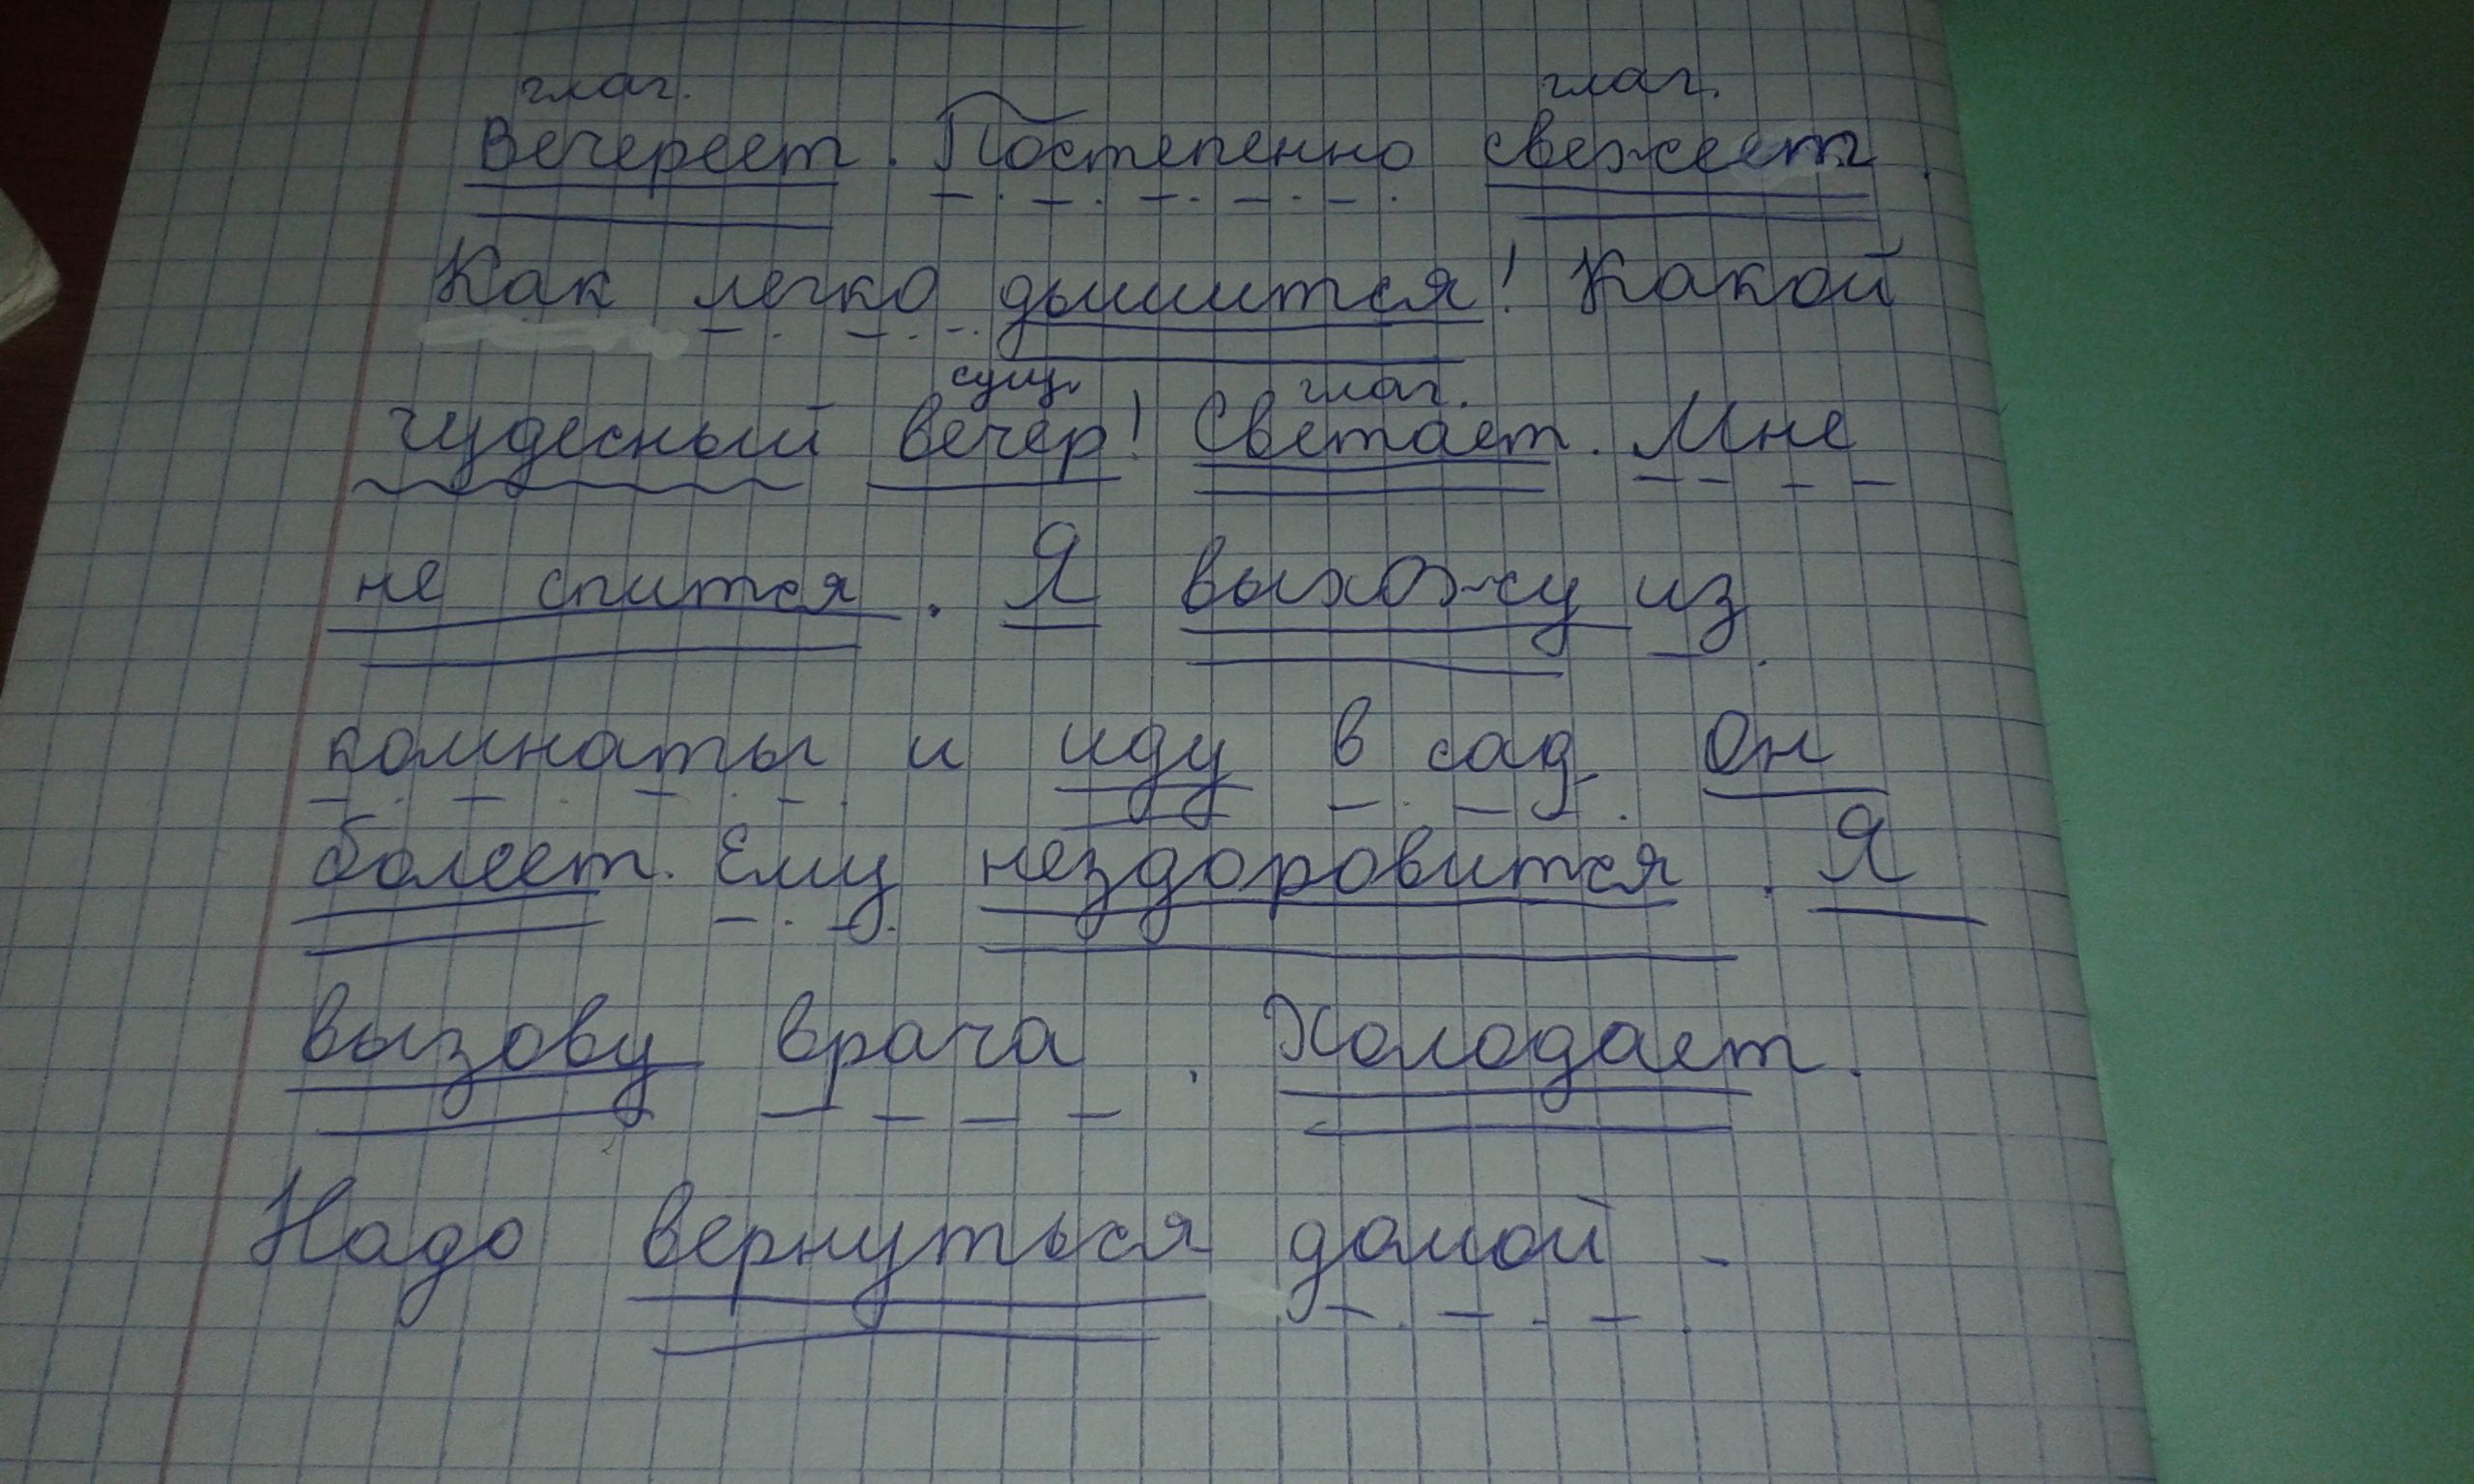 глаг. глаг.
Вечереет. Постепенно свежеет.
Как легко дышится! Какой
сущ. глаг.
чудесный вечер! Светает. Мне
не спится. Я выхожу из
комнаты и иду в сад. Он
болеет. Ему нездоровится. Я
вызову врача. Холодает.
Надо вернуться домой.